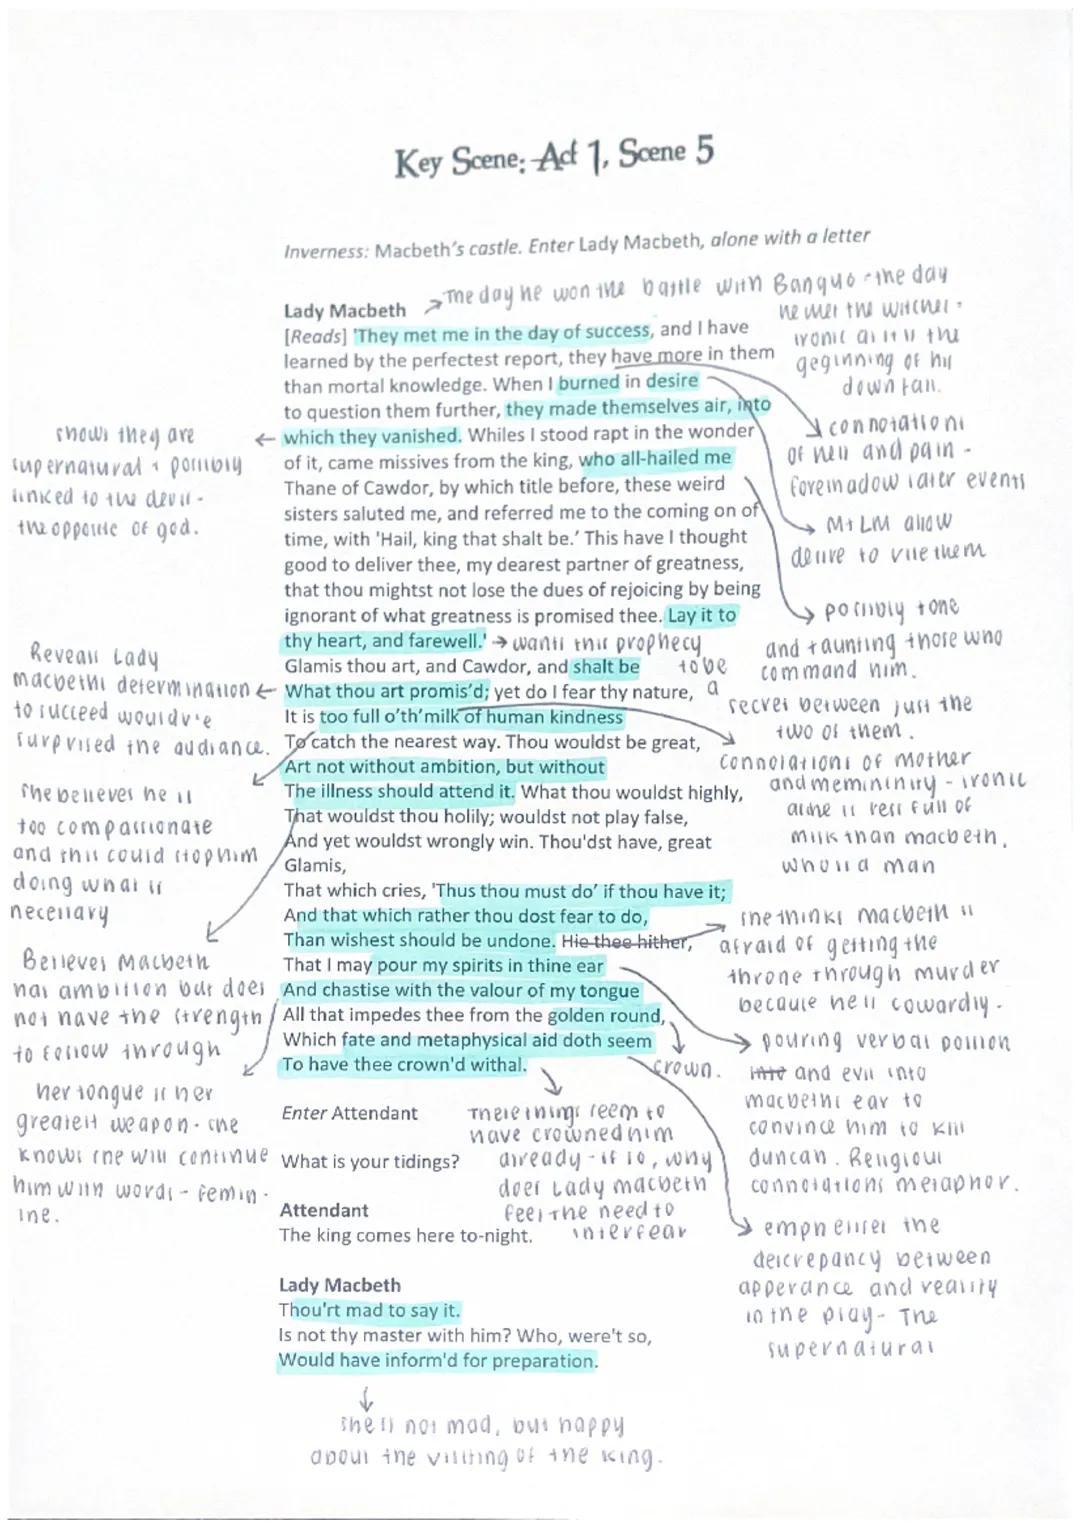 Key Scene: Act 1, Scene 5
Inverness: Macbeth's castle. Enter Lady Macbeth, alone with a letter
The day he won the battle with Banquo - the day
he met the witches -
ironic as it is the
geginning of his
downfall.
Lady Macbeth
[Reads] 'They met me in the day of success, and I have
learned by the perfectest report, they have more in them
than mortal knowledge. When I burned in desire
to question them further, they made themselves air, into
which they vanished. Whiles I stood rapt in the wonder
of it, came missives from the king, who all-hailed me
Thane of Cawdor, by which title before, these weird
sisters saluted me, and referred me to the coming on of
time, with 'Hail, king that shalt be.' This have I thought
good to deliver thee, my dearest partner of greatness,
that thou mightst not lose the dues of rejoicing by being
ignorant of what greatness is promised thee. Lay it to
thy heart, and farewell.' → wants this prophecy
to be
a
secret between just the
two of them.
Glamis thou art, and Cawdor, and shalt be
What thou art promis'd; yet do I fear thy nature,
It is too full o'th'milk of human kindness
To catch the nearest way. Thou wouldst be great,
Art not without ambition, but without
The illness should attend it. What thou wouldst highly,
That wouldst thou holily; wouldst not play false,
And yet wouldst wrongly win. Thou'dst have, great
Glamis,
That which cries, 'Thus thou must do' if thou have it;
And that which rather thou dost fear to do,
Than wishest should be undone. Hie thee hither,
That I may pour my spirits in thine ear
And chastise with the valour of my tongue
All that impedes thee from the golden round,
Which fate and metaphysical aid doth seem
To have thee crown'd withal.
crown.
Enter Attendant
What is your tidings?
Attendant
The king comes here to-night.
Lady Macbeth
Thou'rt mad to say it.
Is not thy master with him? Who, were't so,
Would have inform'd for preparation.
shows they are
supernatural + possibly
linked to the devil -
the opposite of god.
Reveals Lady
macbeths determination
to succeed wouldv'e
surprised the audiance.
She believes he is
too compassionate
and this could stop him
doing what is
necessary
Believes Macbeth
has ambition but does
not have the strength
to follow through
her tongue is her
greatest weapon - she
knows she will continue
him with words - femin -
ine.
connotations
of hell and pain -
foreshadow later events
M + LM allow
desire to them
possibly tone
and taunting those who
command him.
connotations of mother
and memininity - ironic
as he is less full of
milk than macbeth,
who is a man
she thinks macbeth is
afraid of getting the
throne through murder
because he is cowardly.
pouring verbal poison
into and evil into
macbeths ear to
convince him to kill
duncan. Religious
connotations metaphor.
emphersises the
descrepancy between
apperance and reality
in the play - The
supernatural
These things seem to
have crowned him
already - if so, why
does Lady macbeth
feel the need to
interfear
She is not mad, but happy
about the visiting of the king.